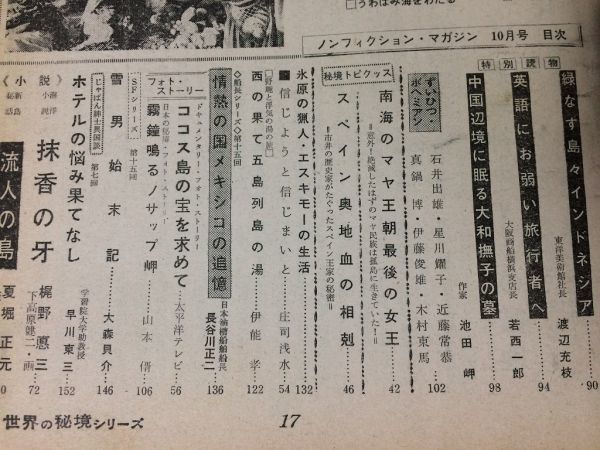 □うわばみ海をわたる
ノンフィクション・マガジン　10月号　目次
特別読物
緑なす島々インドネシア
東洋美術館社長　渡辺充枝……90
英語にお弱い旅行者へ
大阪商船横浜支店長　若西一郎……94
中国辺境に眠る大和撫子の墓
作家　池田岬……98
ずいひつ・ボヘミアン
石井出雄・星川耀子・近藤常恭
真鍋博・伊藤俊雄・木村東馬……102
秘境トピックス
南海のマヤ王朝最後の女王……42
＝意外！絶滅したはずのマヤ民族は孤島に生きていた！＝
スペイン奥地血の相剋……46
＝市井の歴史家がたぐったスペイン王家の秘密＝
氷原の猟人・エスキモーの生活……132
■信じようと信じまいと……庄司浅水……54
西の果て五島列島の湯……伊能孝……122
◇船長シリーズ◇第十五回
情熱の国メキシコの追憶
日本油槽船船舶長　長谷川正二……136
フォト・ストーリー
ドキュメンタリー・フォト・ストーリー
ココス島の宝を求めて……太平洋テレビ……56
日本の秘境・フォト・ストーリー
霧鐘鳴るサップ岬……山本偦……106
SFシリーズ　第十五回
雪男始末記……大森貝介……146
じゃぱん紳士奥国談　第七回
ホテルの悩み果てなし
学習院大学助教授　早川東三……152
《小説》
海洋小説　抹香の牙……梶野悳三
下高原健二・画……72
新島秘話　流人の島
夏堀正元
世界の秘境シリーズ
17